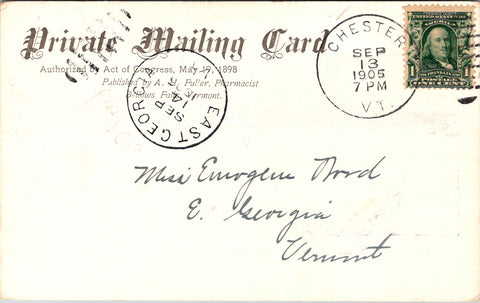 Private Mailing Card
Authorized by Act of Congress, May 19, 1898
Published by A. H. Fuller, Pharmacist
Bellows Falls, Vermont.
EAST GEORGIA
SEP
14
CHESTER
SEP
13
1905
7 PM
VT.
FRANKLIN
1 1
Miss Emogene Wood
E. Georgia
Vermont